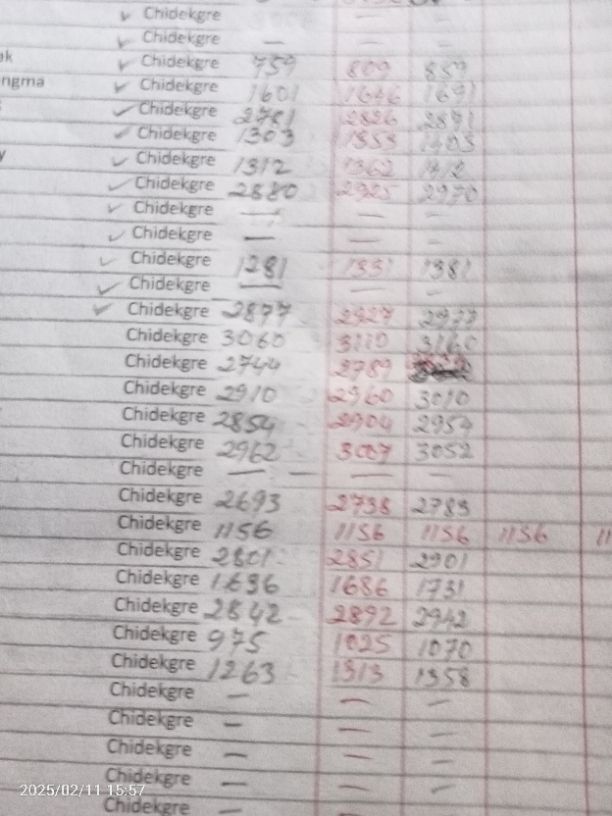 ✓ Chidekgre
✓ Chidekgre — — —
ak ✓ Chidekgre 759 809 859
ngma ✓ Chidekgre 1601 1646 1691
✓ Chidekgre 2781 2826 2871
✓ Chidekgre 1303 1353 1403
y ✓ Chidekgre 1312 1362 1412
✓ Chidekgre 2880 2925 2970
✓ Chidekgre — — —
✓ Chidekgre — — —
✓ Chidekgre 1281 1331 1381
✓ Chidekgre — — —
✓ Chidekgre 2877 2927 2977
Chidekgre 3060 3110 3160
Chidekgre 2744 2789
Chidekgre 2910 2960 3010
Chidekgre 2854 2904 2954
Chidekgre 2962 3007 3052
Chidekgre — — — —
Chidekgre 2693 2738 2783
Chidekgre 1156 1156 1156 1156 11
Chidekgre 2801 2851 2901
Chidekgre 1636 1686 1731
Chidekgre 2842 2892 2942
Chidekgre 975 1025 1070
Chidekgre 1263 1313 1358
Chidekgre — — —
Chidekgre — — —
Chidekgre — — —
Chidekgre — — —
Chidekgre — —
2025/02/11 15:57